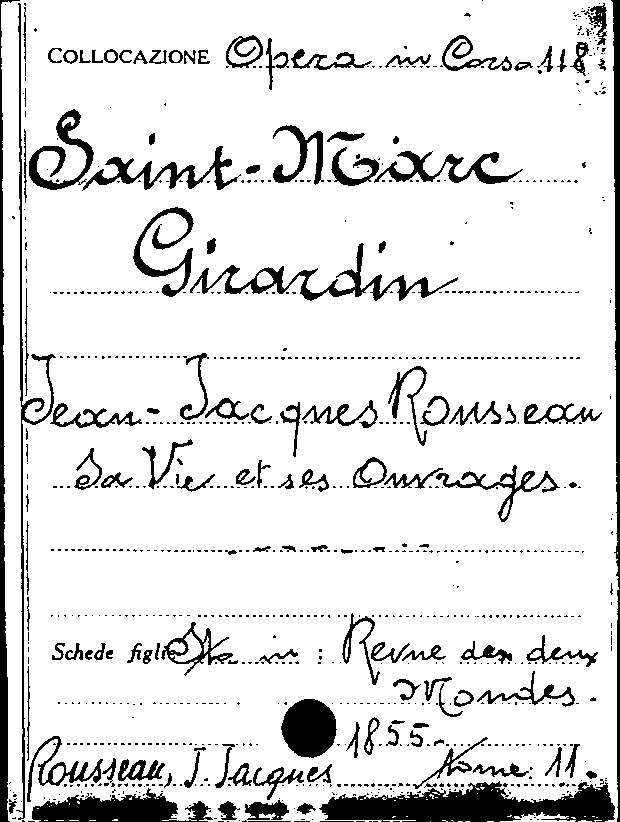 COLLOCAZIONE Opera in Corso 118
Saint-Marc
Girardin
Jean-Jacques Rousseau
Sa Vie et ses Ouvrages.
Schede figlie Sta in : Revue des deux
Mondes.
1855.-
Rousseau, J. Jacques Tome: 11.